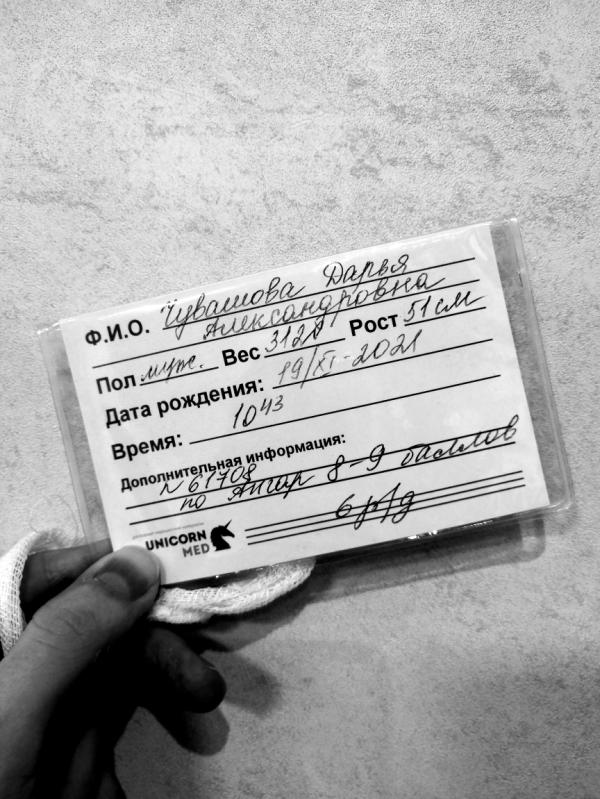 Ф.И.О. Чувашова Дарья
Александровна
Пол муж. Вес 3120 Рост 51 см
Дата рождения: 19/XI-2021
Время: 10 43
Дополнительная информация:
N 61708
по Апгар 8-9 баллов
UNICORN
MED